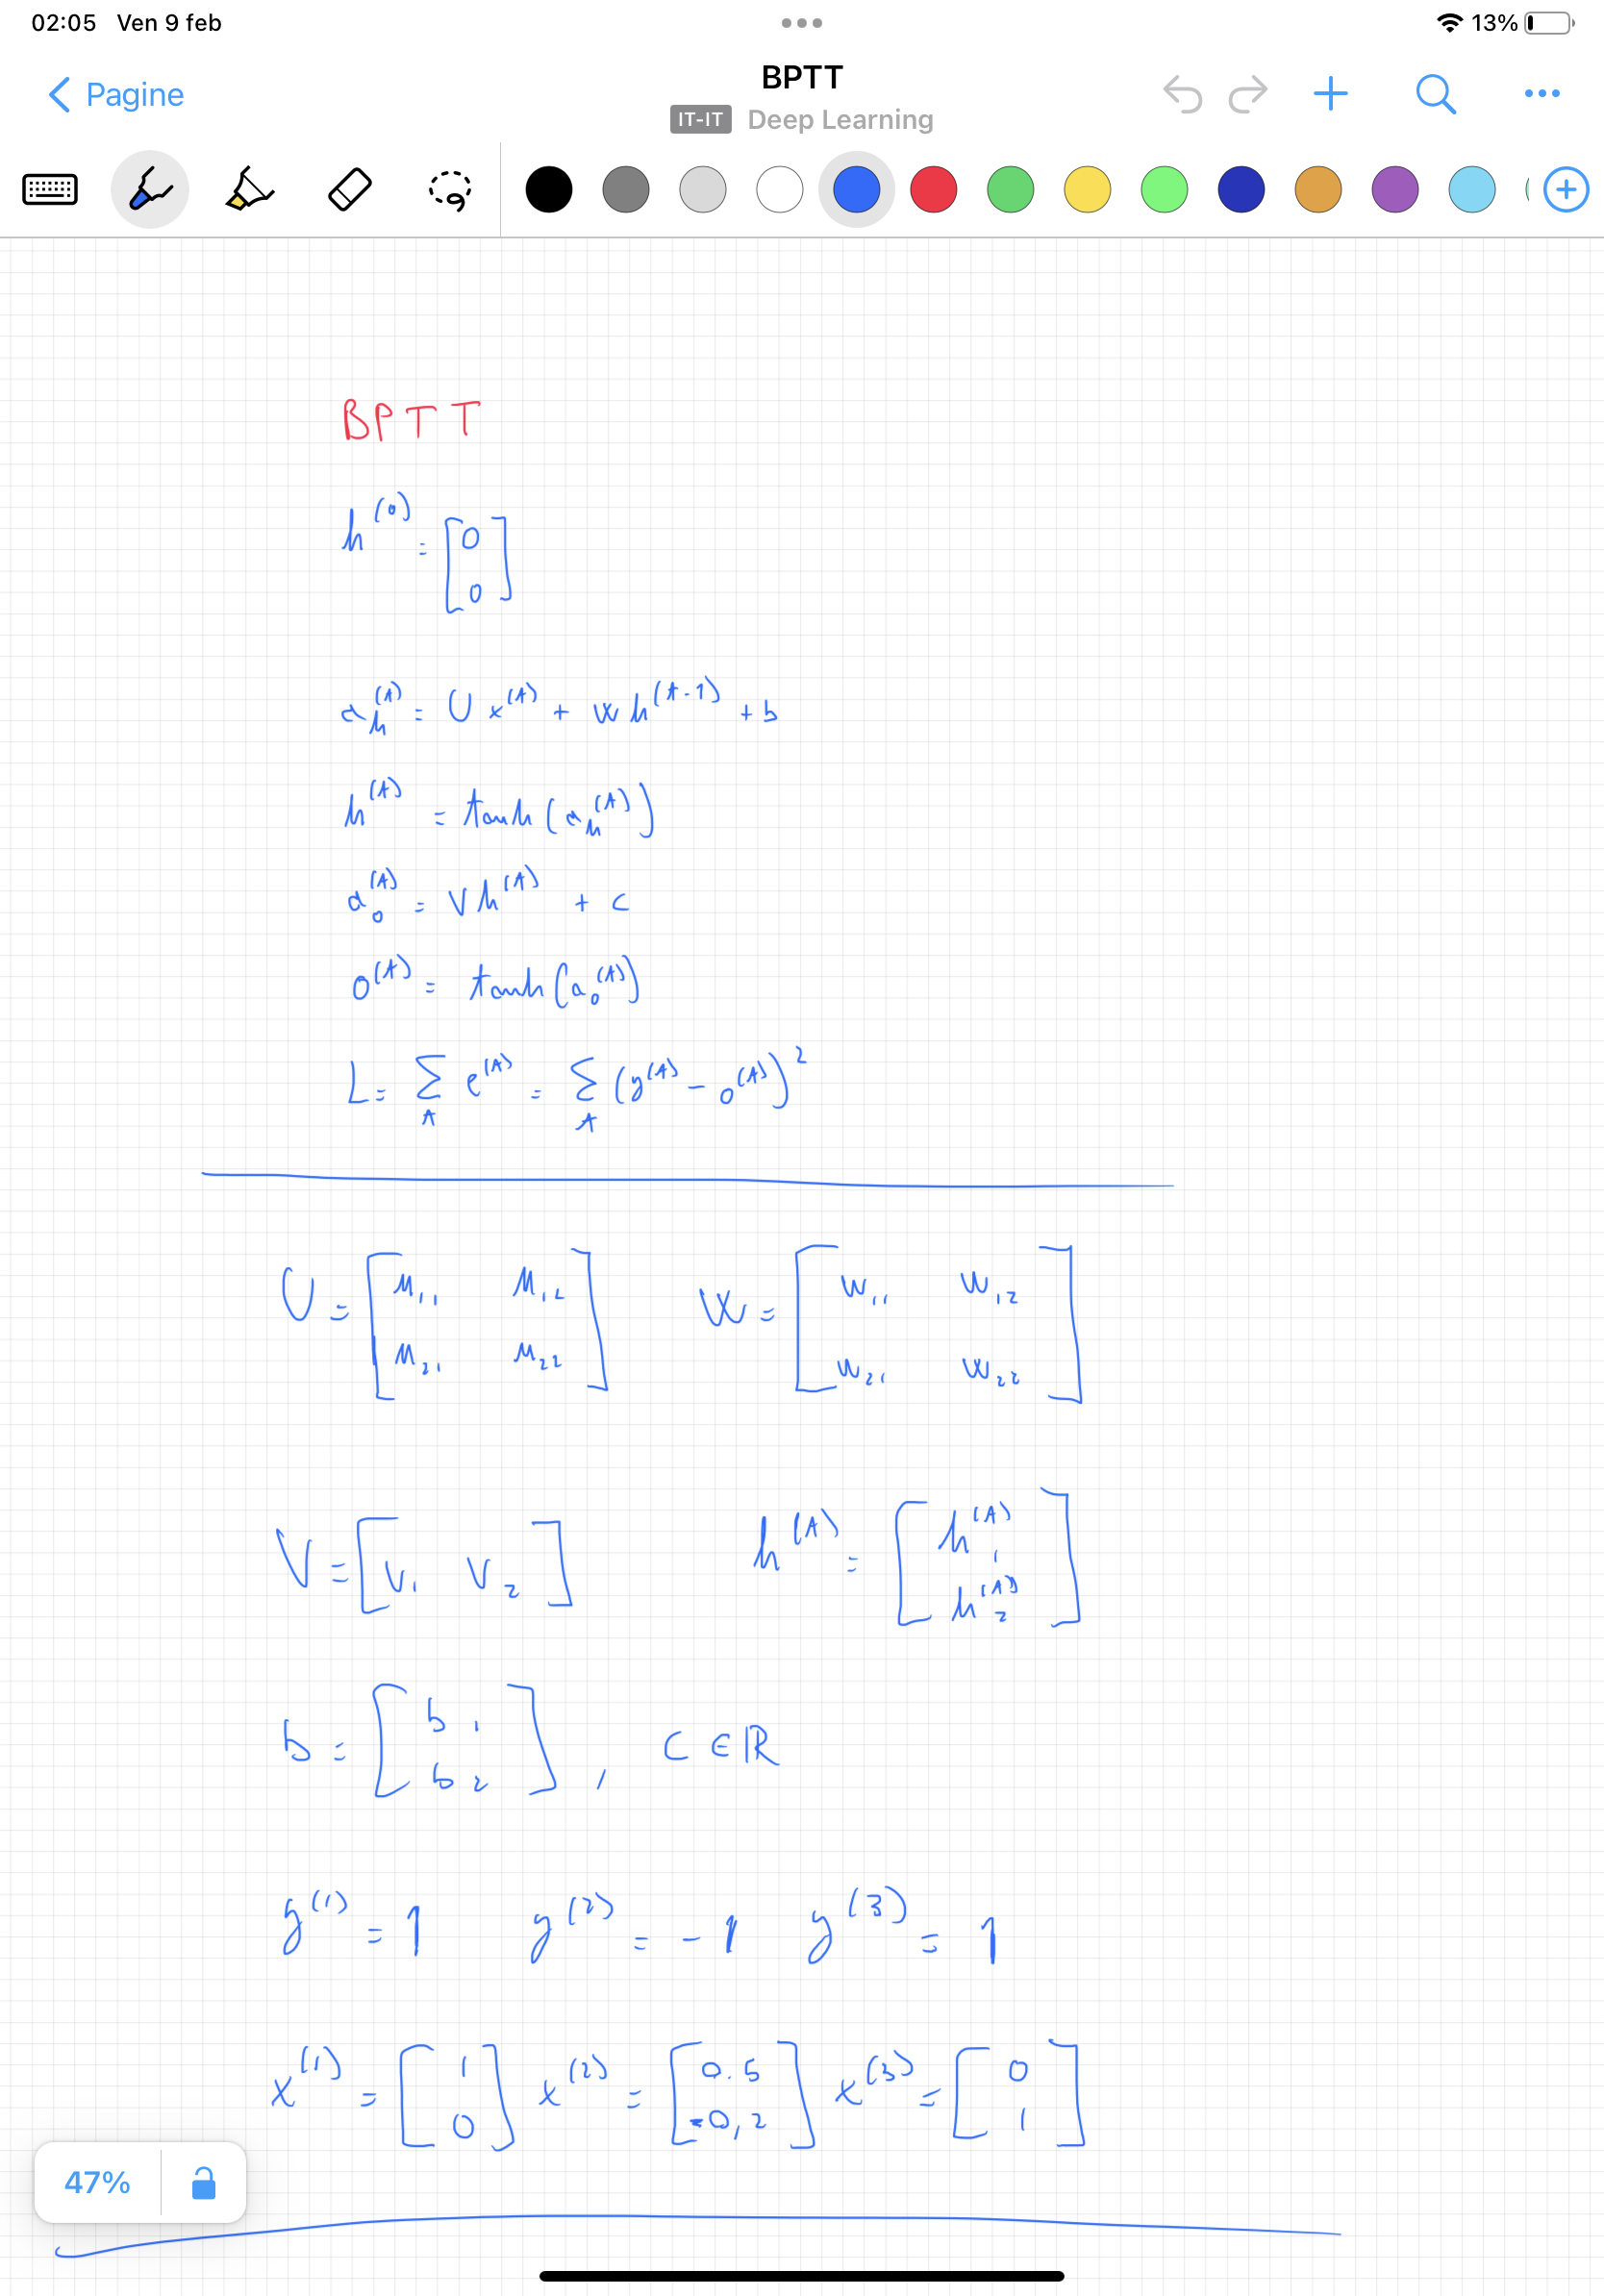 02:05 Ven 9 feb 13%
Pagine
BPTT
IT-IT Deep Learning
BPTT
h^(0) = [0 0]
a_h^(t) = U x^(t) + W h^(t-1) + b
h^(t) = tanh(a_h^(t))
a_o^(t) = V h^(t) + c
o^(t) = tanh(a_o^(t))
L = Σ_t e^(t) = Σ_t (y^(t) - o^(t))^2
U = [u_11 u_12 u_21 u_22] W = [w_11 w_12 w_21 w_22]
V = [v_1 v_2] h^(t) = [h_1^(t) h_2^(t)]
b = [b_1 b_2], c ∈ ℝ
y^(1) = 1 y^(2) = -1 y^(3) = 1
x^(1) = [1 0] x^(2) = [0.5 -0,2] x^(3) = [0 1]
47%